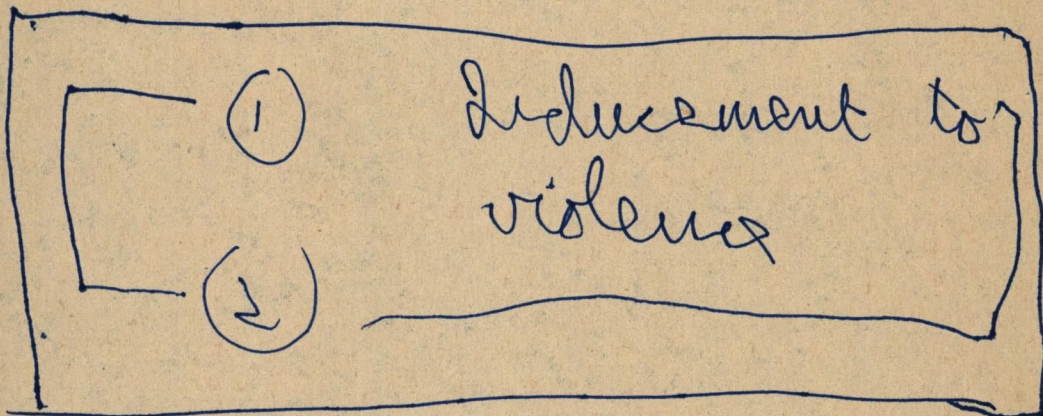 ① Inducement to
violence
②